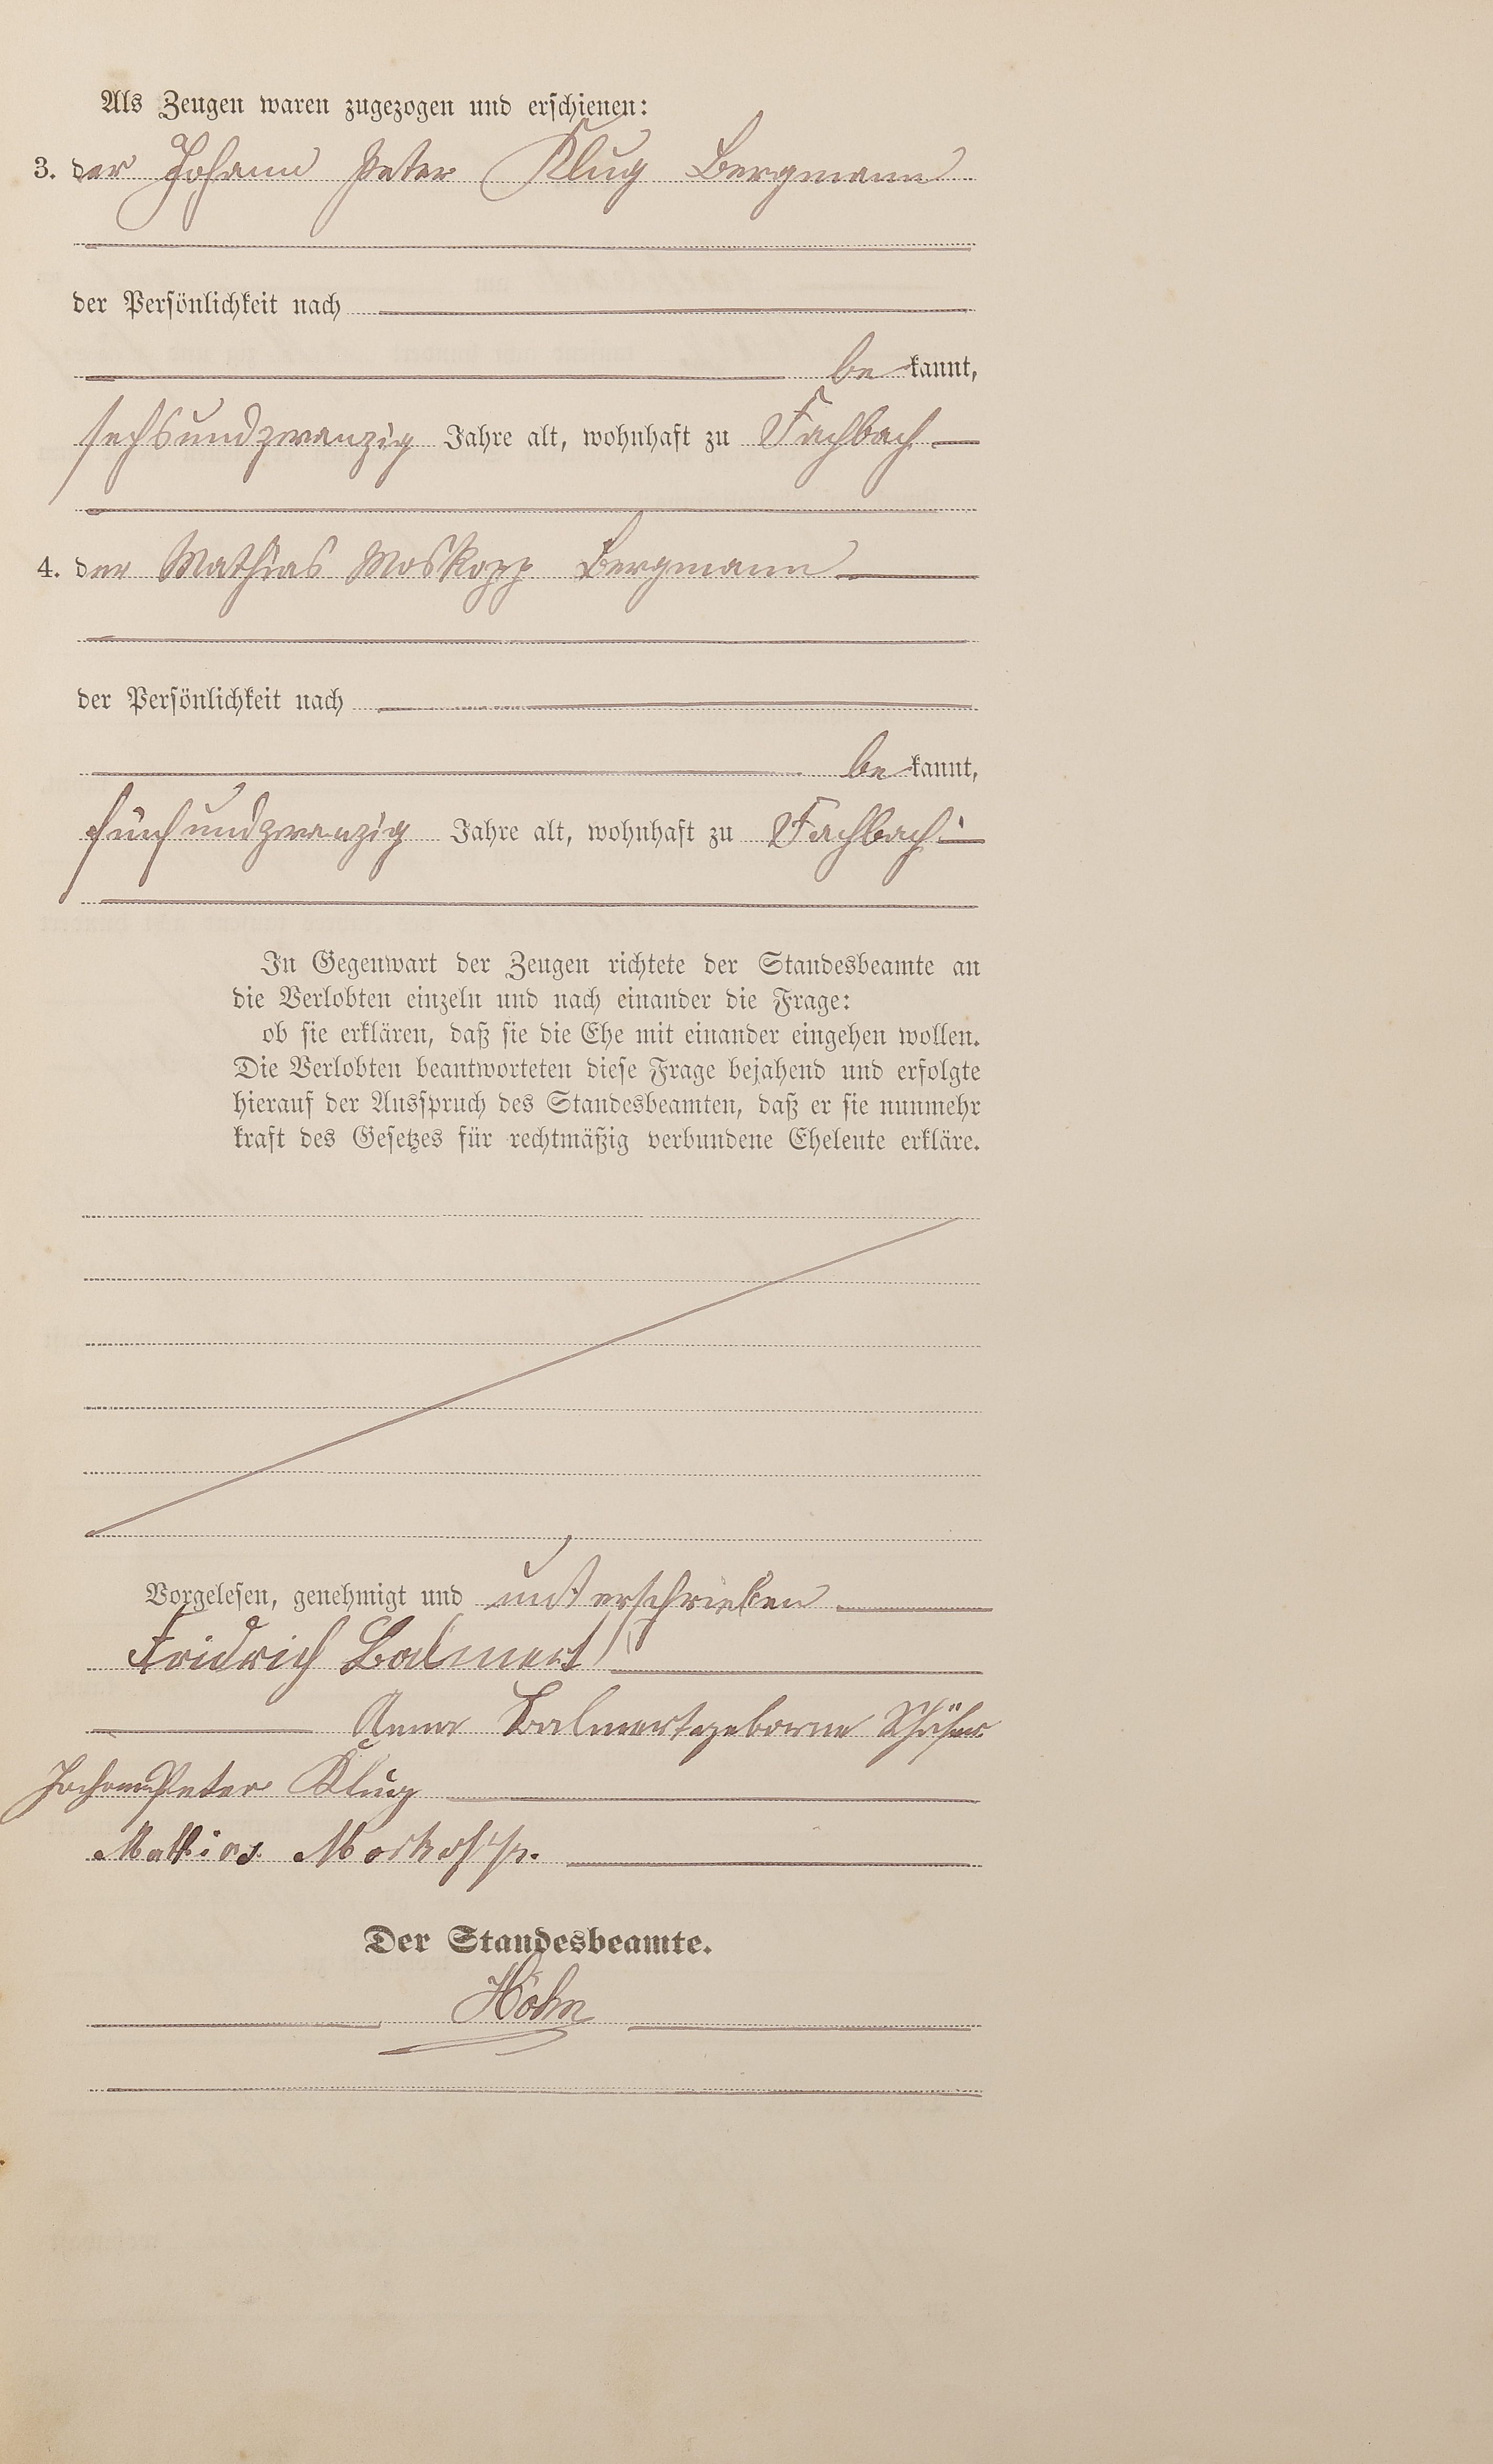 Als Zeugen waren zugezogen und erschienen:
3. der Johann Peter Klug Bergmann
der Persönlichkeit nach
be kannt,
sechsundzwanzig Jahre alt, wohnhaft zu Fachbach
4. der Mathias Moskopp Bergmann
der Persönlichkeit nach
be kannt,
fünfundzwanzig Jahre alt, wohnhaft zu Fachbach
In Gegenwart der Zeugen richtete der Standesbeamte an
die Verlobten einzeln und nach einander die Frage:
ob sie erklären, daß sie die Ehe mit einander eingehen wollen.
Die Verlobten beantworteten diese Frage bejahend und erfolgte
hierauf der Ausspruch des Standesbeamten, daß er sie nunmehr
kraft des Gesetzes für rechtmäßig verbundene Eheleute erkläre.
Vorgelesen, genehmigt und unterschrieben
Fridrich Balmert
Anna Balmert geborne Schäfer
Johann Peter Klug
Mathias Moskopp.
Der Standesbeamte.
Höhn